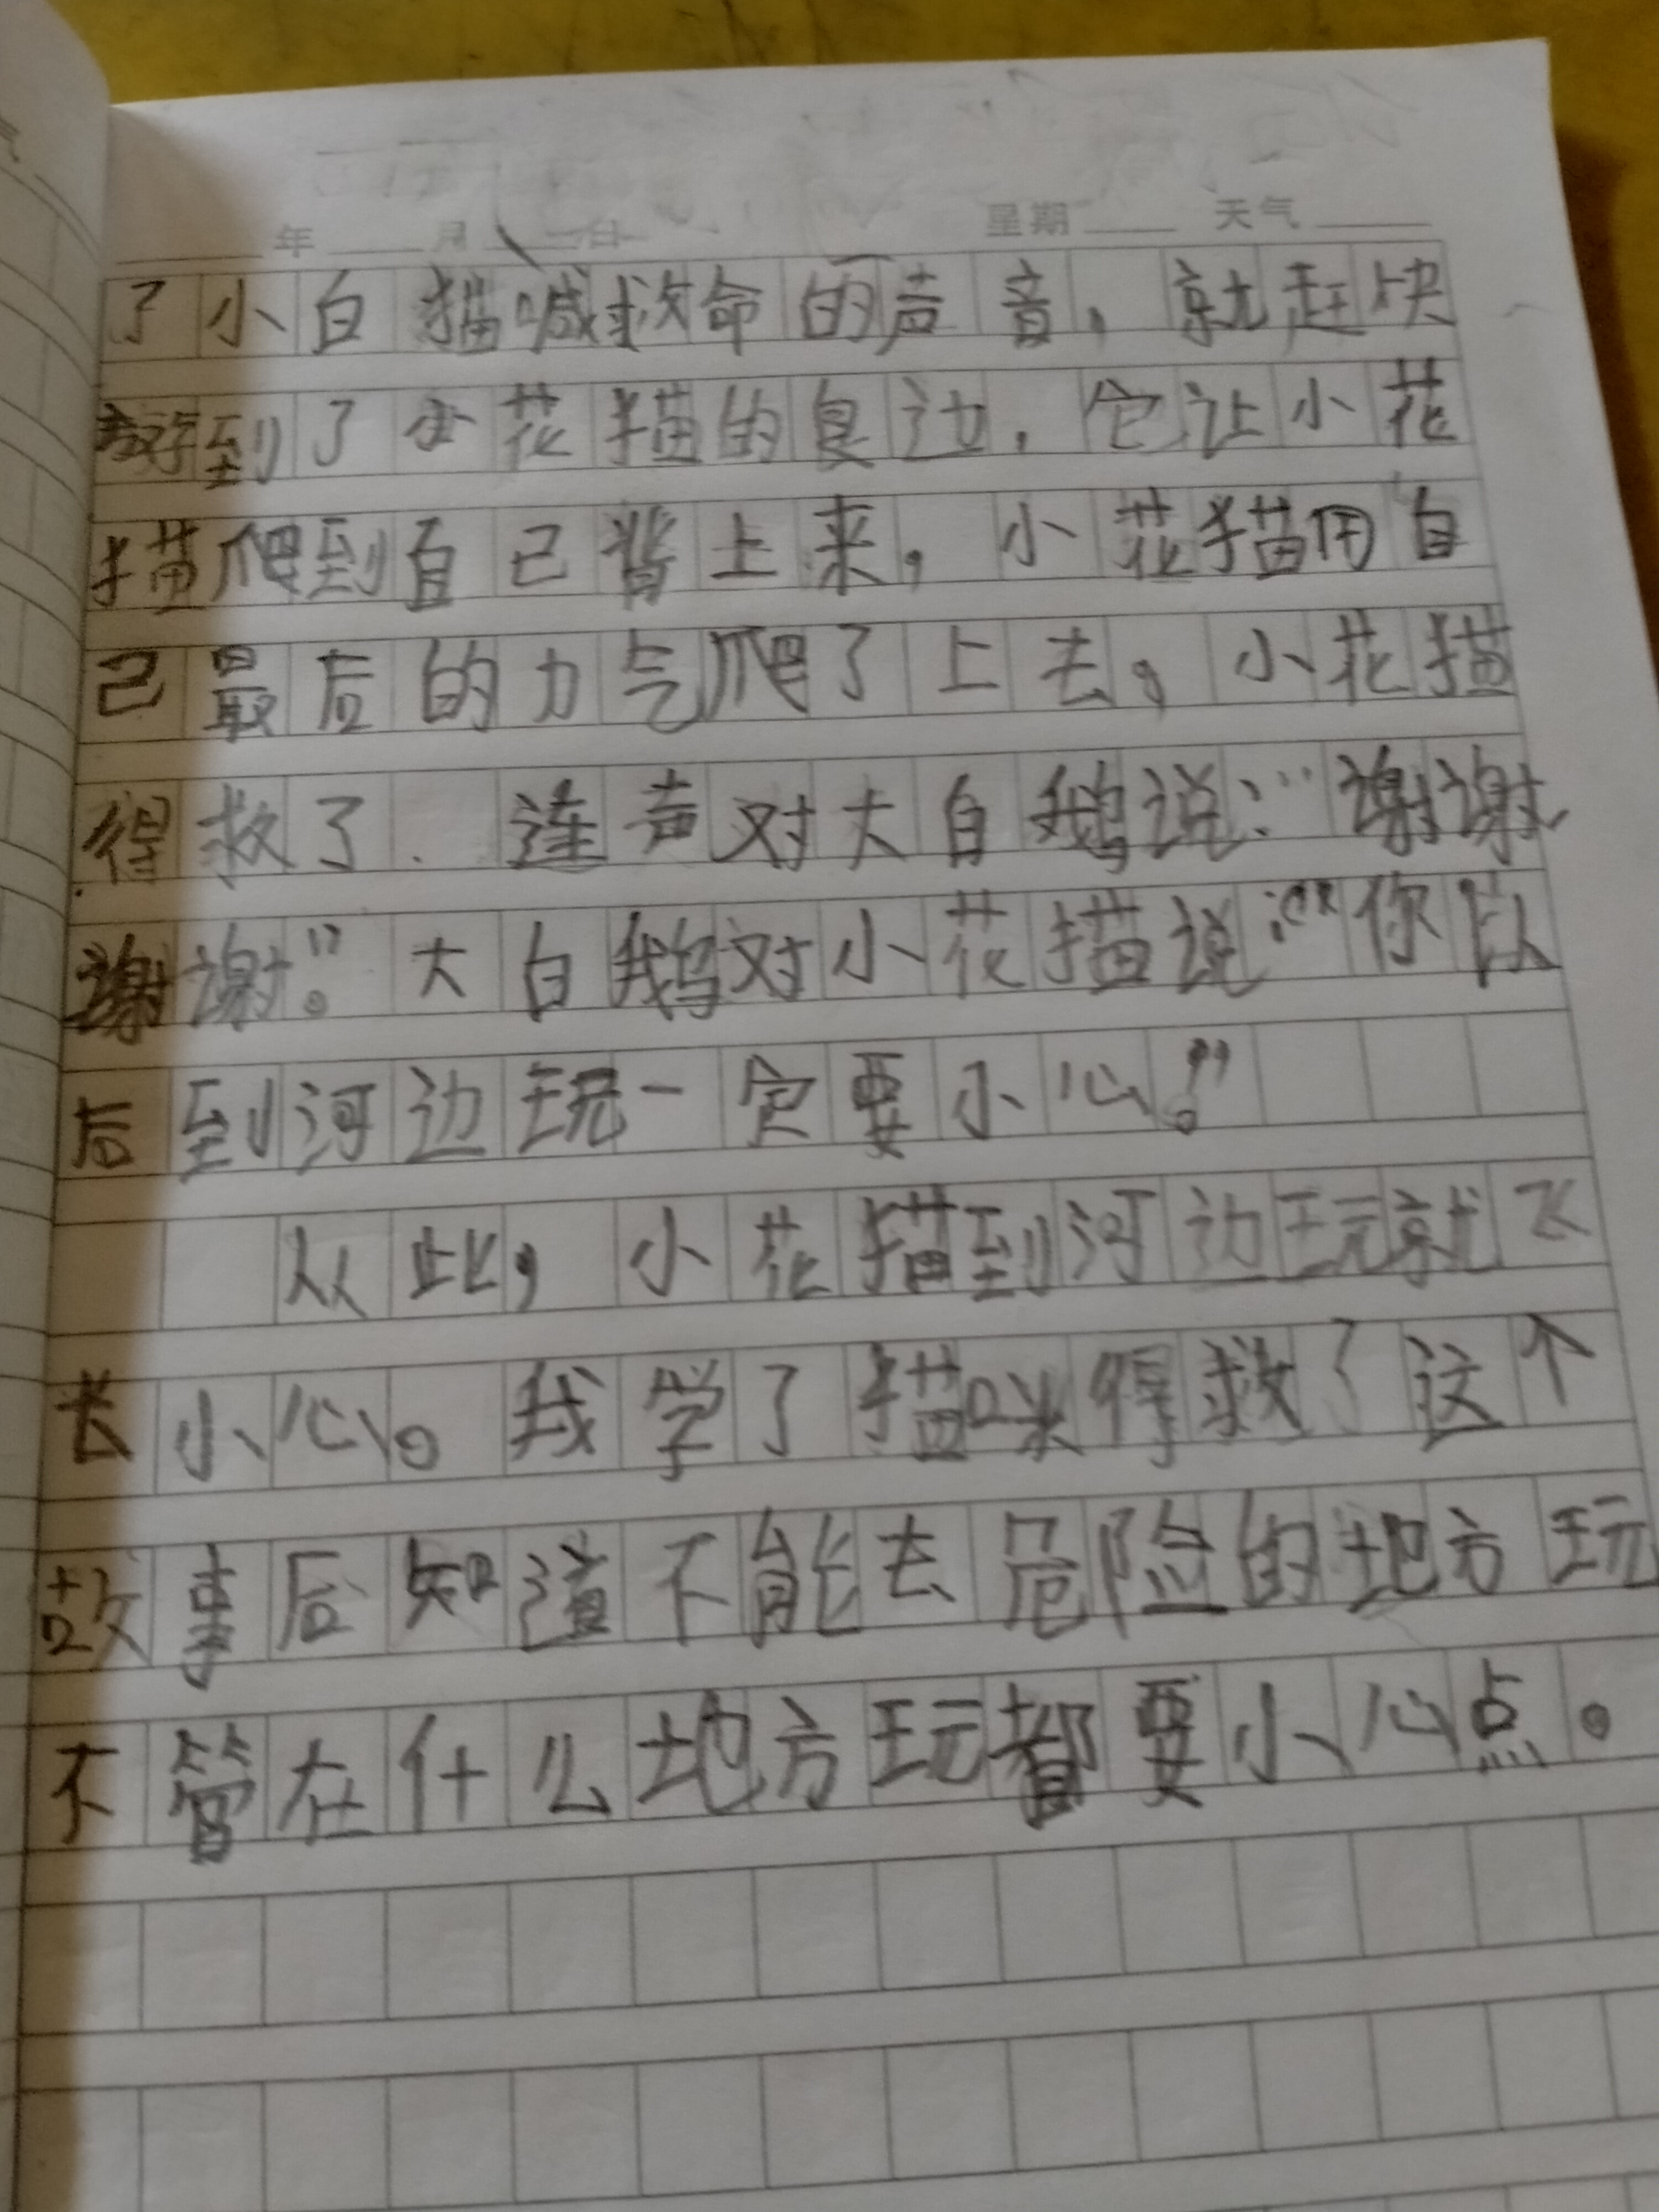 年 月 日 星期 天气
了小白猫喊救命的声音，就赶快
游到了小花猫的身边，它让小花
猫爬到自己背上来，小花猫用自
己最后的力气爬了上去，小花猫
得救了．连声对大白鹅说：“谢谢，
谢谢”。大白鹅对小花猫说：“你以
后到河边玩一定要小心。”
从此，小花猫到河边玩就飞
长小心。我学了猫咪得救了这个
故事后知道不能去危险的地方玩
不管在什么地方玩都要小心点。